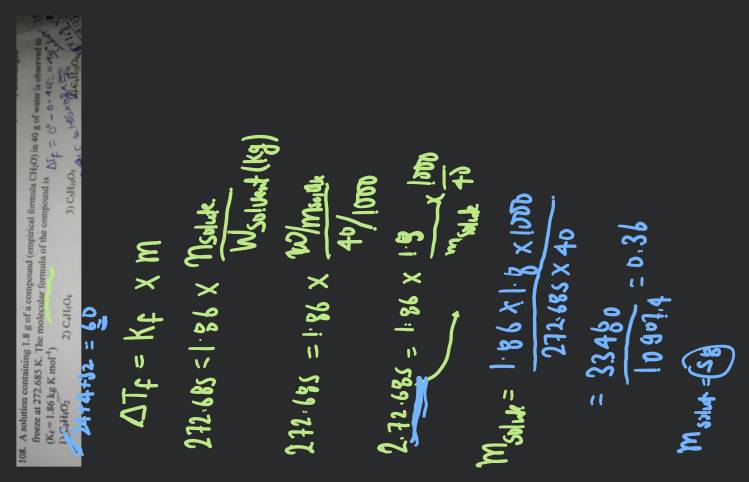 108. A solution containing 1.8 g of a compound (empirical formula CH₂O) in 40 g of water is observed to
freeze at 272.685 K. The molecular formula of the compound is
(Kf = 1.86 kg K mol⁻¹)
1) C₂H₄O₂ 2) C₄H₈O₄ 3) C₅H₁₀O₅
24+4+32 = 60
ΔTf = Kf × m
272.685 = 1.86 × nsolute / Wsolvent (kg)
272.685 = 1.86 × W/msolute / 40/1000
2.72.685 = 1.86 × 1.8 / msolute × 1000 / 40
msolute = 1.86 × 1.8 × 1000 / 272.685 × 40
= 33480 / 10907.4 = 0.36
msolut =